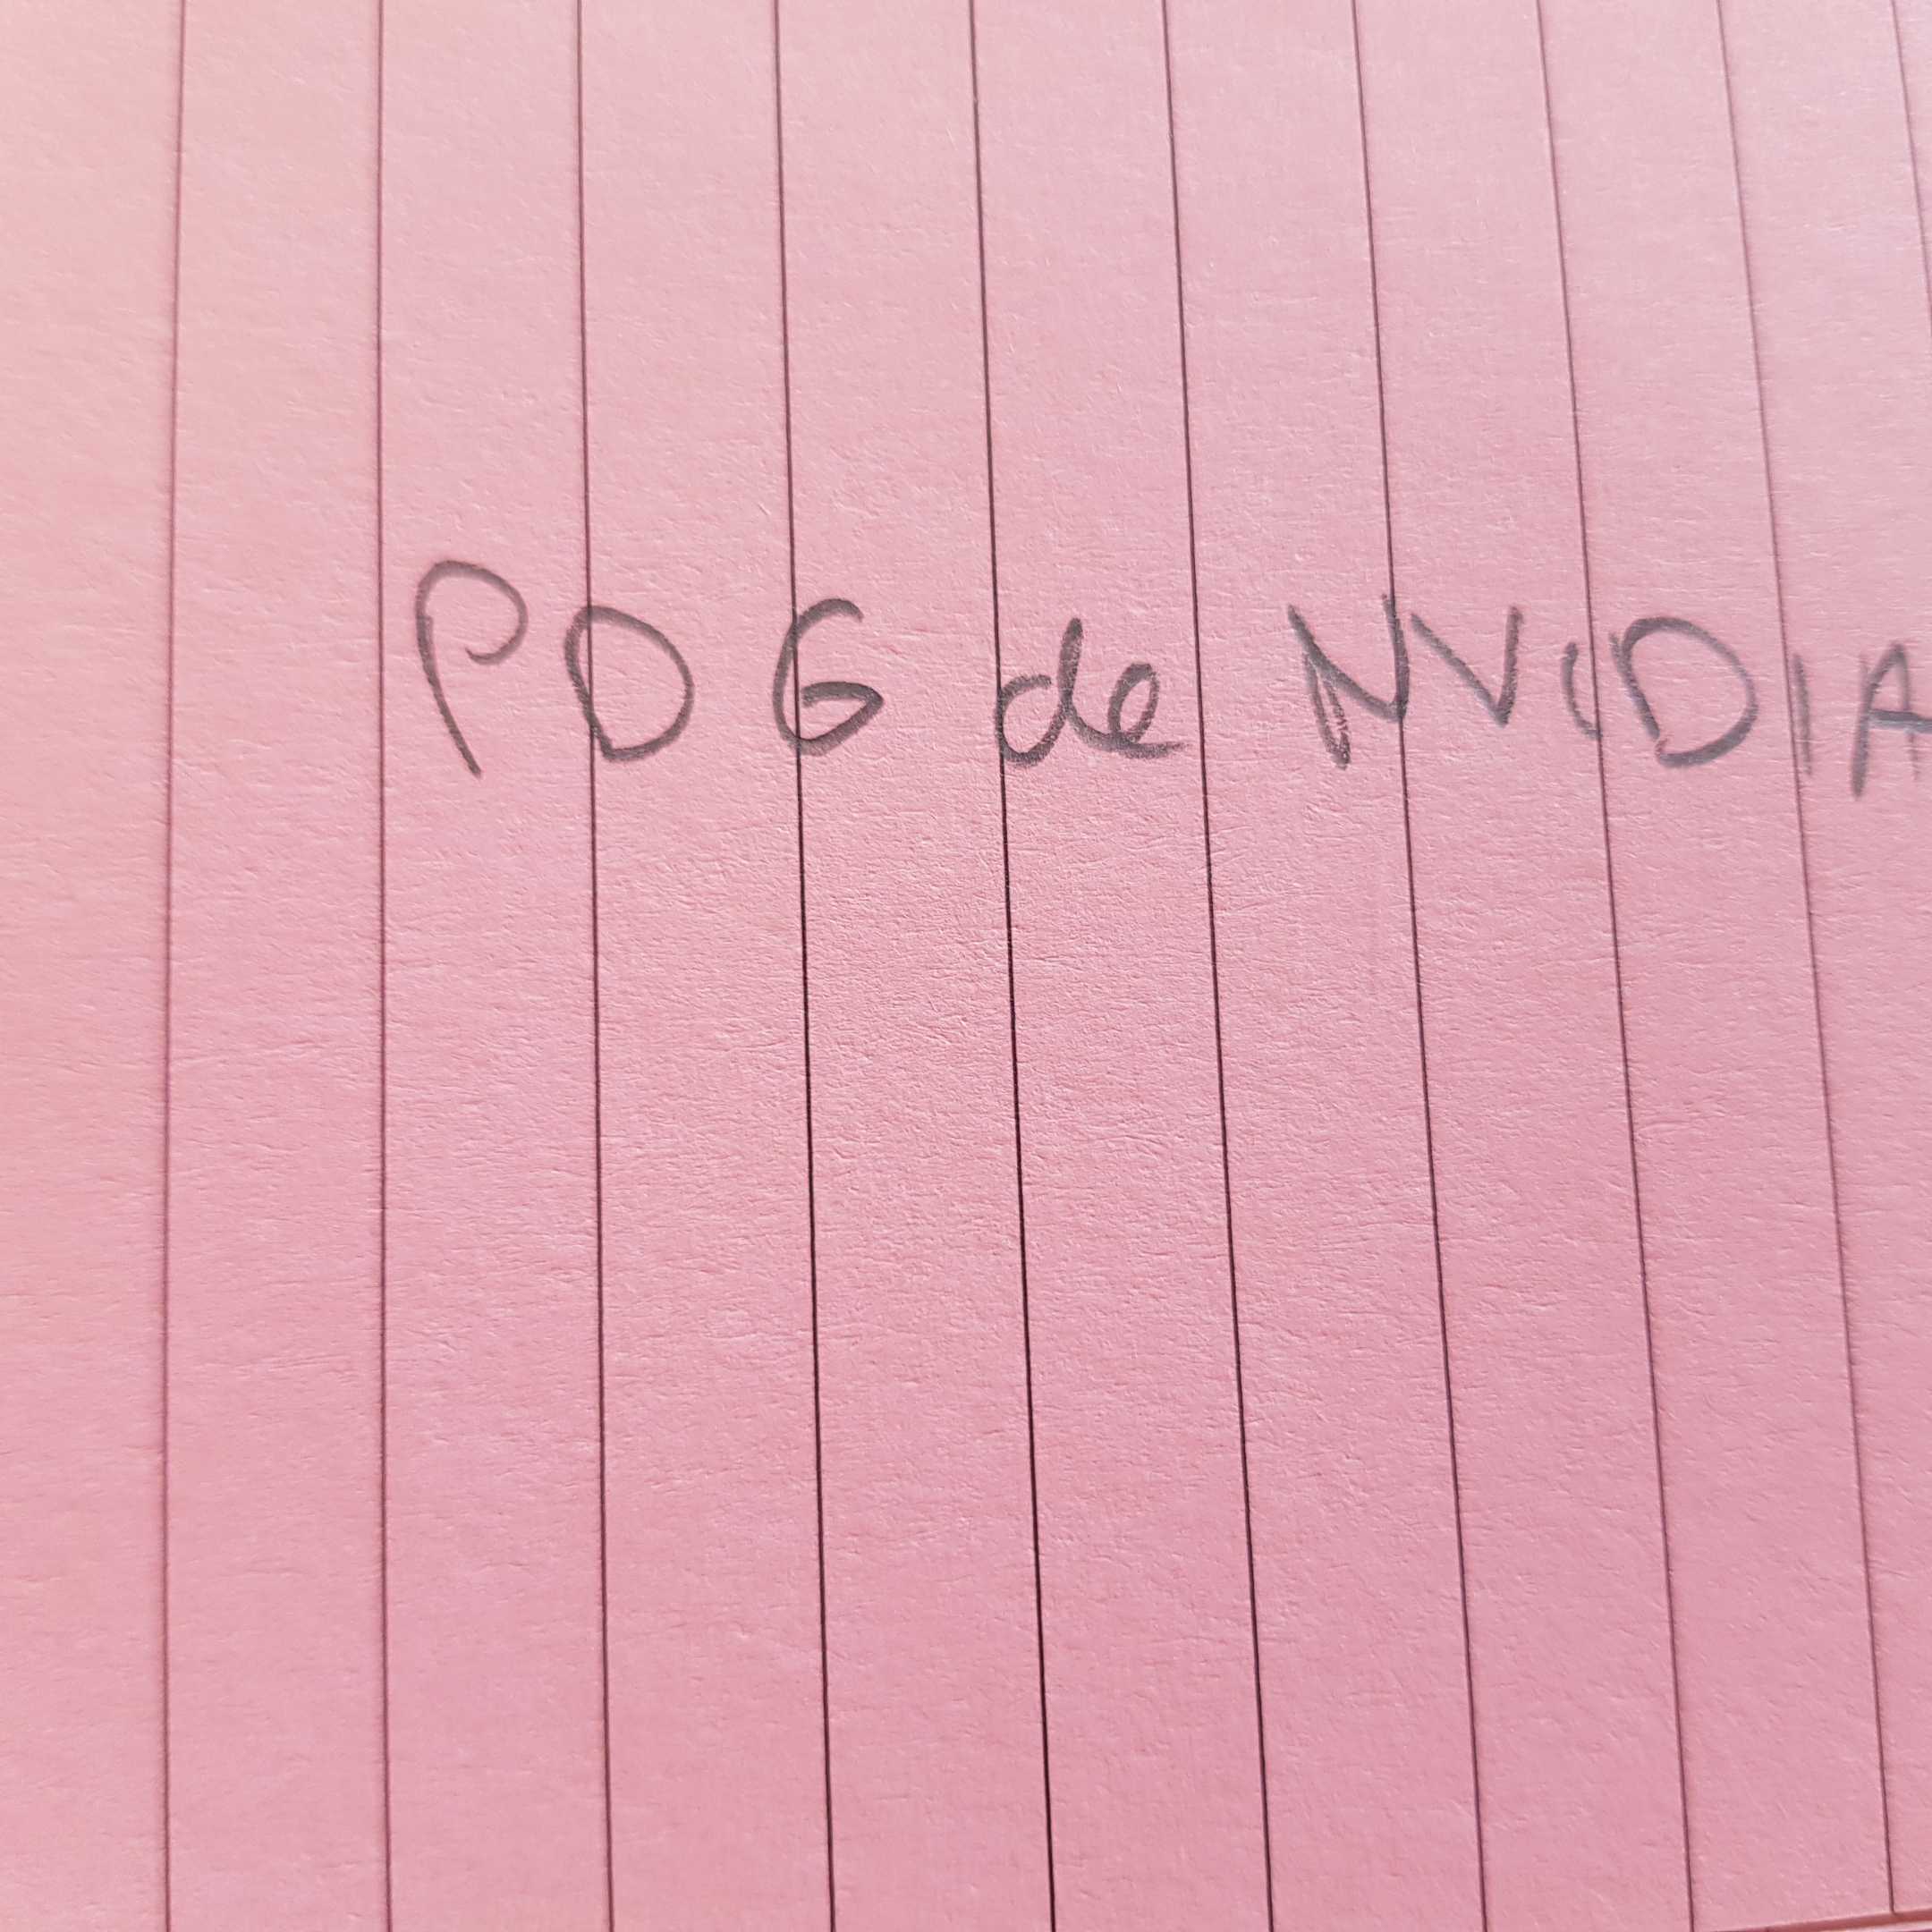 PDG de NVIDIA